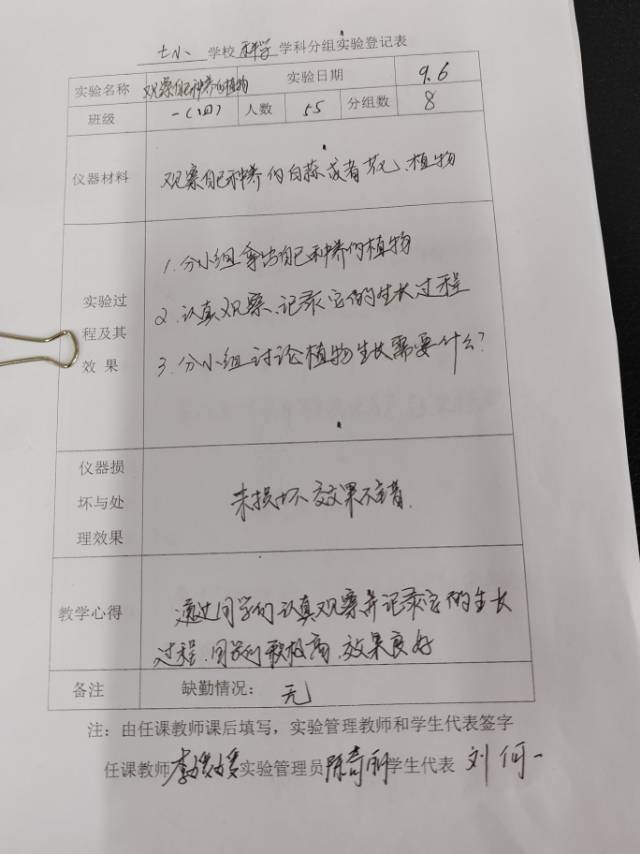 七小 学校 科学 学科分组实验登记表
实验名称 观察自己种养的植物 实验日期 9.6
班级 一(四) 人数 55 分组数 8
仪器材料 观察自己种养的白蒜或者花、植物
1.分小组拿出自己种养的植物
实验过 2.认真观察、记录它们的生长过程
程及其
效果 3.分小组讨论植物生长需要什么?
仪器损
坏与处 未损坏 效果不错.
理效果
教学心得 通过同学们认真观察并记录它们的生长
过程.同学们 效果良好
备注 缺勤情况: 无
注:由任课教师课后填写,实验管理教师和学生代表签字
任课教师 李媛媛 实验管理员 陈奇丽 学生代表 刘何一